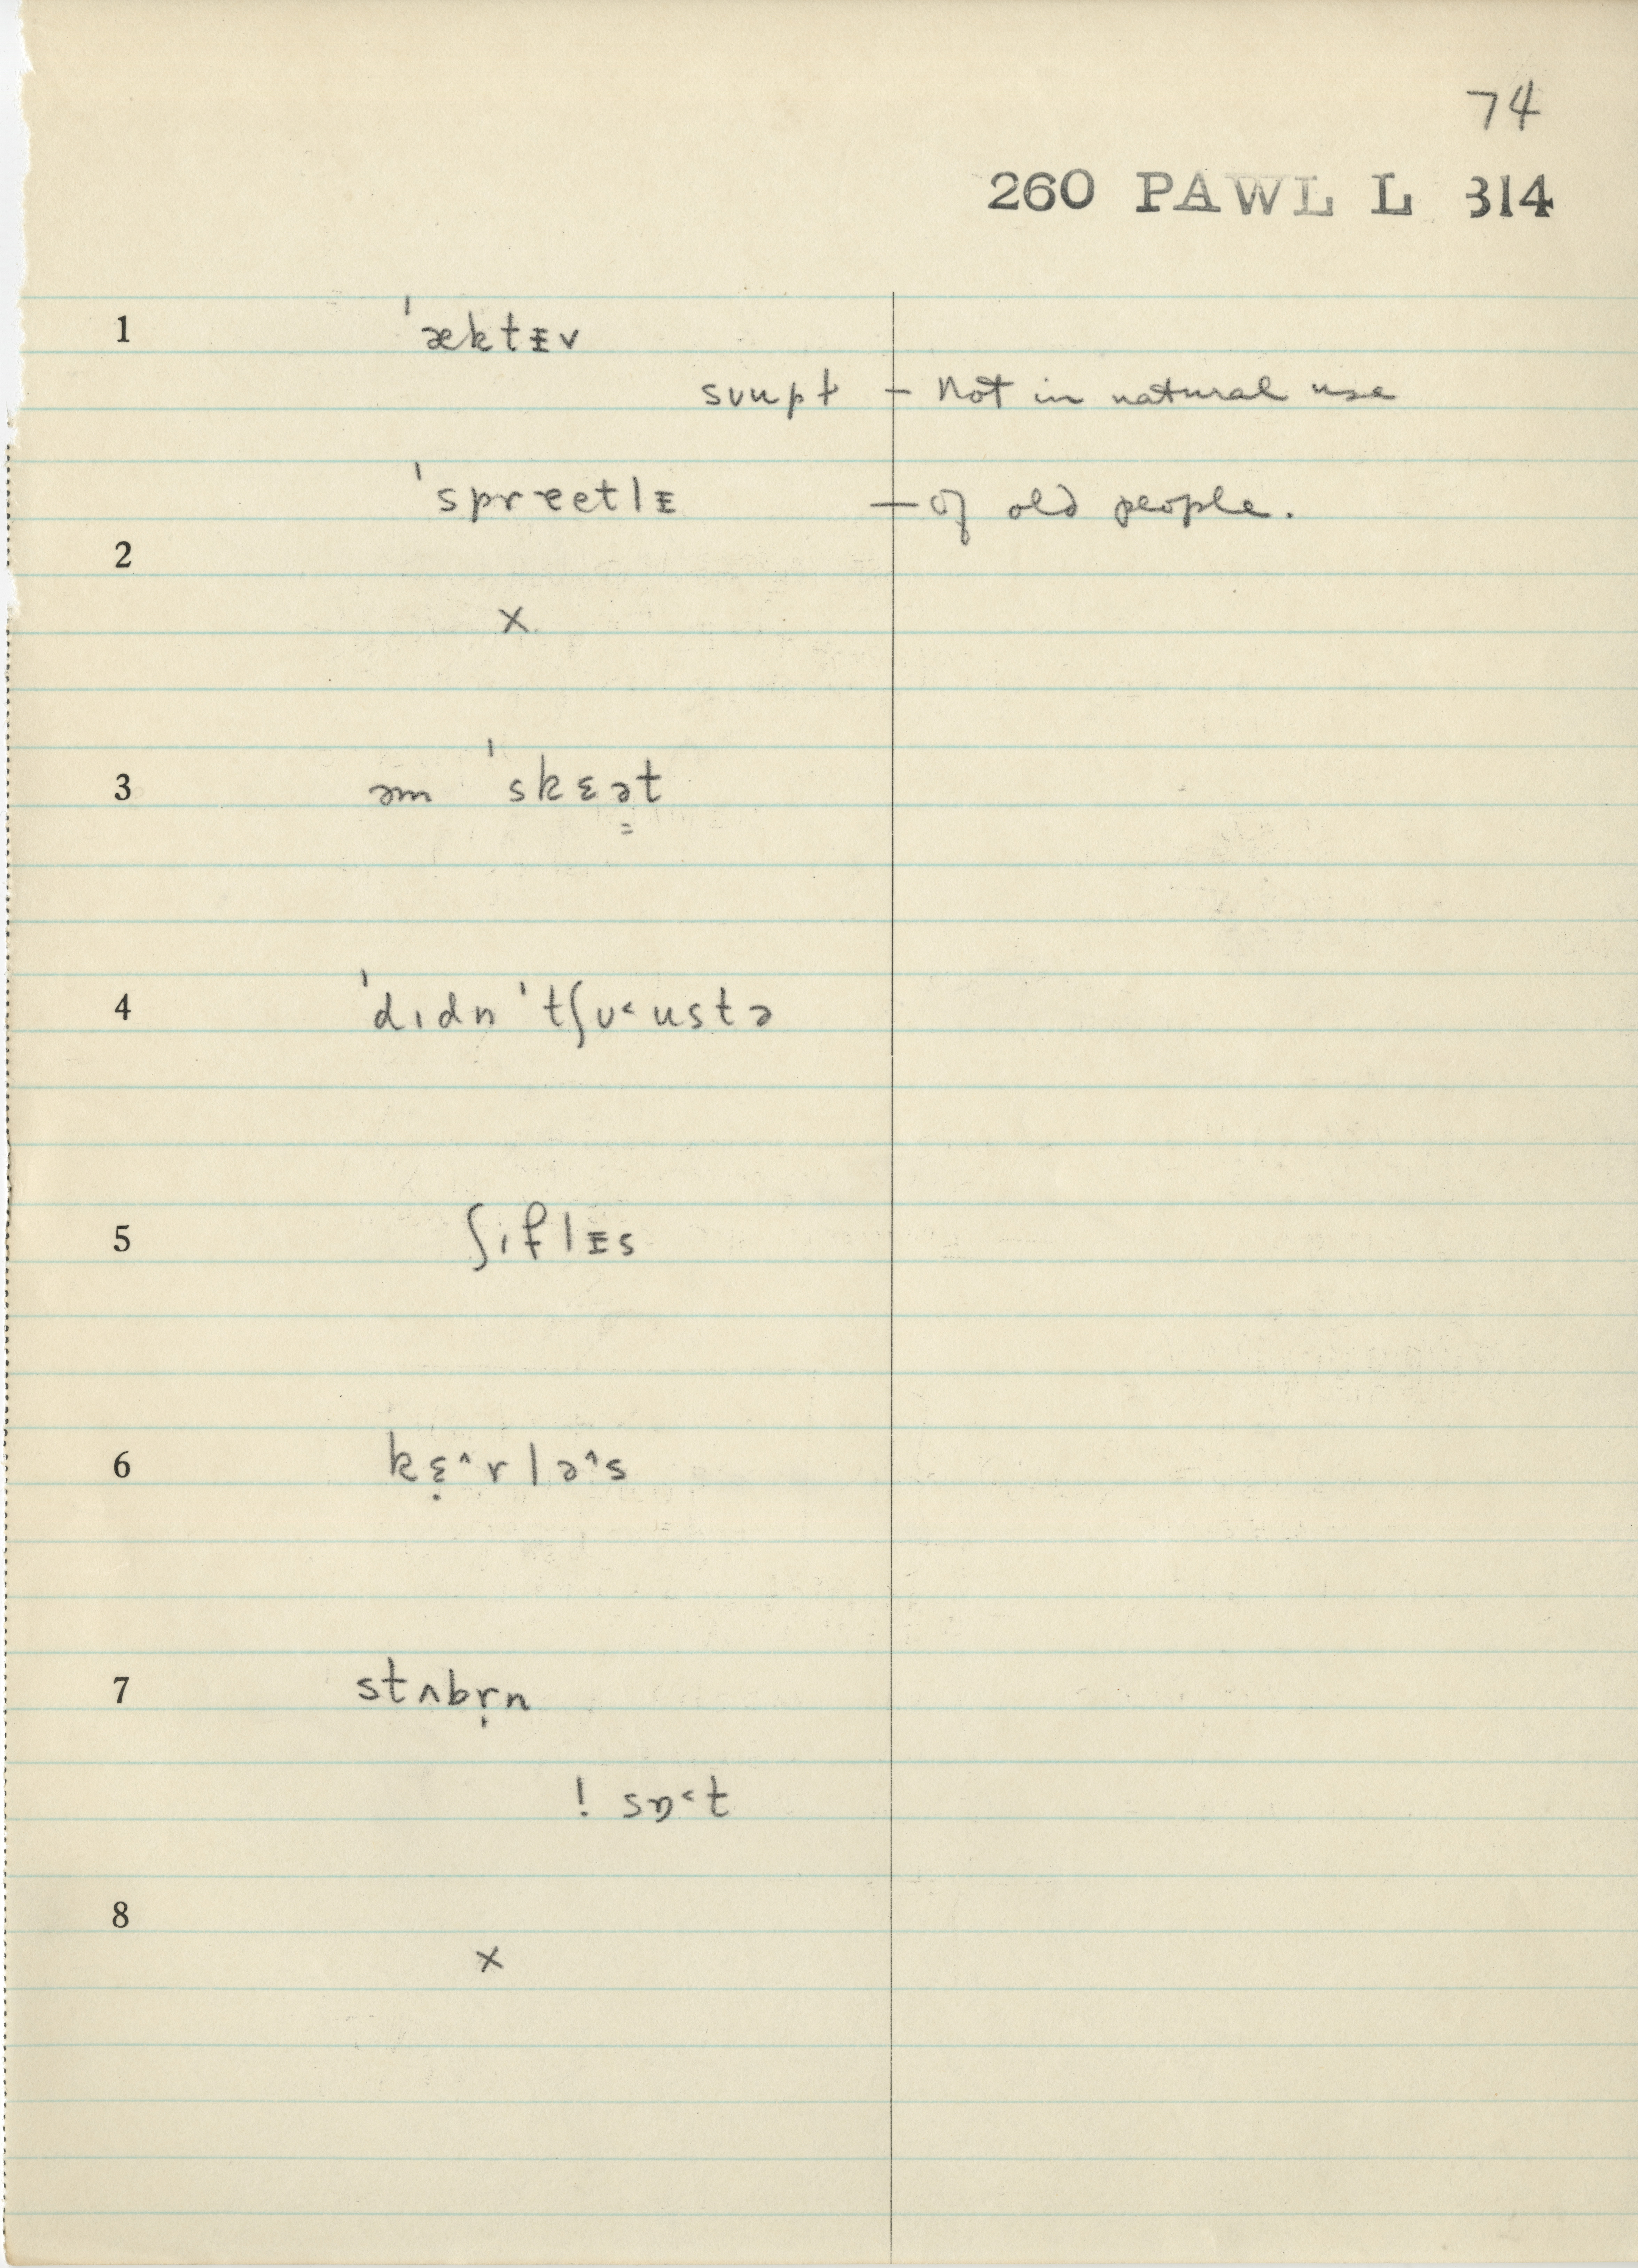 74
260 PAWL L 314
1 ˈæktᵻv
sʋupt – Not in natural use
ˈspræetlɪ – of old people.
2
x
3 əm ˈskɛə̳t
4 ˈdɪdn ˈtʃʊ˂ustə
5 ʃɪflᵻs
6 kɛ̣˄rlə˄s
7 stʌbr̩n
! sɒ˂t
8
x